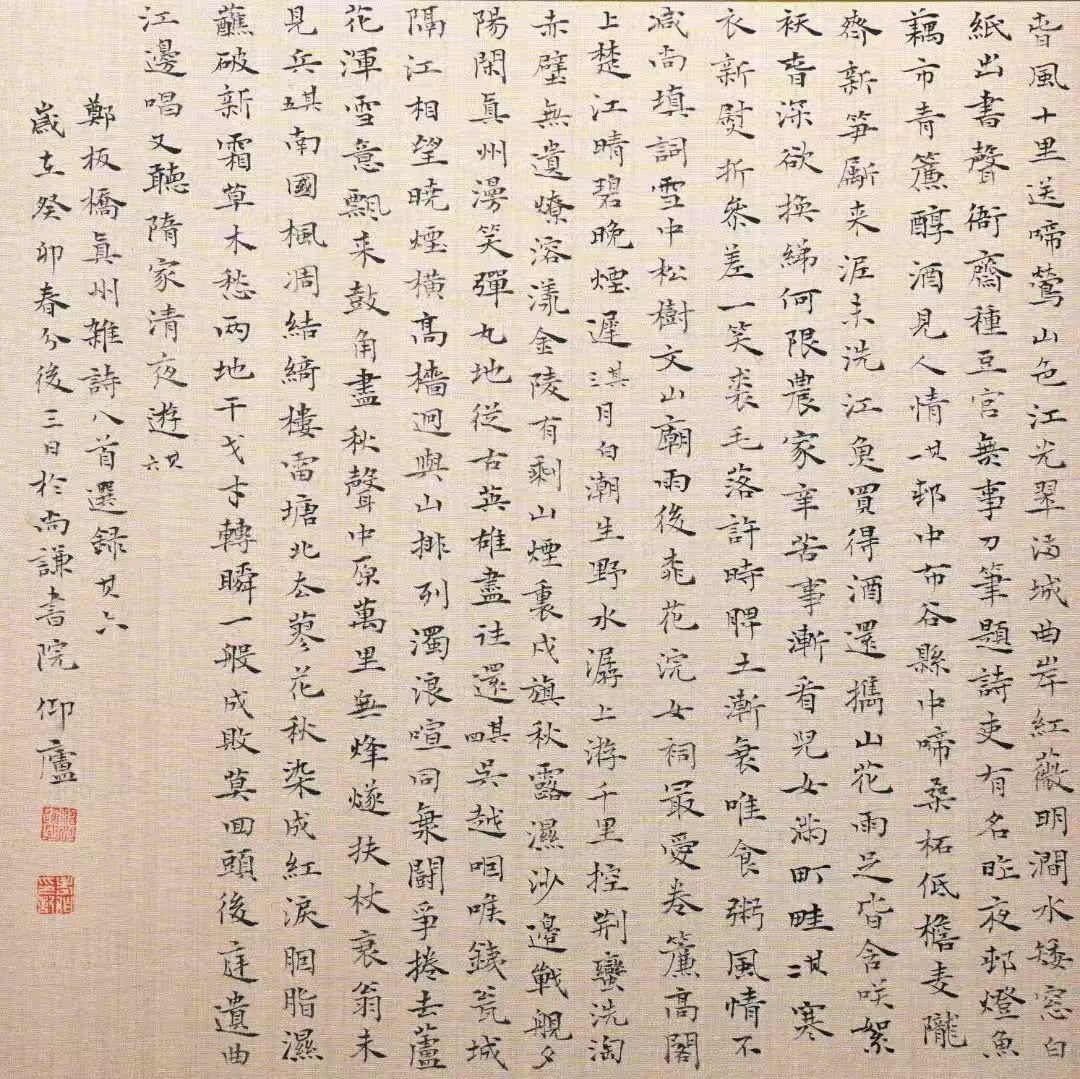 春風十里送啼鶯山色江光翠滿城曲岸紅薇明澗水矮窓白
紙出書聲衙齋種豆官無事刀筆題詩吏有名昨夜邨燈魚
藕市青簾醇酒見人情其一邨中布谷縣中啼桑柘低檐麦隴
齊新笋斸来泥未洗江魚買得酒還攜山花雨足皆含咲絮
袄春深欲換綈何限農家辛苦事漸看兒女滿町畦其二寒
衣新熨折參差一笑裘毛落許時脾土漸衰唯食粥風情不
减尚填詞雪中松樹文山廟雨後桃花浣女祠最愛卷簾高閣
上楚江晴碧晚煙遲其三月白潮生野水潺上游千里控荆蠻洗淘
赤壁無遺燎溶漾金陵有剩山煙裏戍旗秋露濕沙邊戰艦夕
陽閑真州漫笑彈丸地從古英雄盡往還其四吳越咽喉鐵瓮城
隔江相望曉煙橫高檣迥與山排列濁浪喧同衆鬪爭捲去蘆
花渾雪意飄来鼓角盡秋聲中原萬里無烽燧扶杖衰翁未
見兵其五南國楓凋結綺樓雷塘北去蓼花秋染成紅淚胭脂濕
蘸破新霜草木愁两地干戈才轉瞬一般成敗莫回頭後庭遺曲
江邊唱又聽隋家清夜遊其六
鄭板橋真州雜詩八首選録其六
歲在癸卯春分後三日於尚謙書院仰廬